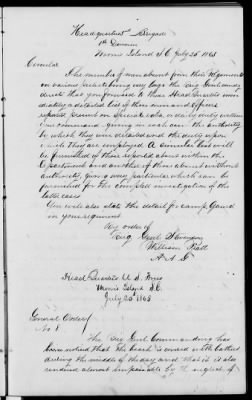 Headquarters Brigade
1st Division
Morris Island S.C. July 25th 1863
Circular
The number of men absent from their Regiments
on various duties being very large the Brig Genl Comdg
directs that you forward to these Head Quarters imme
diately a detailed list of the men and officers
reported present on special, extra, or daily duty within
your command giving in each case the authority
by which they were detailed and the duty upon
which they are employed. A similar list will
be furnished of those reported absent within the
Department and another of those absent without
authority, giving every particular which can be
furnished for the complete investigation of the
latter cases
You will also state the detail for camp Guard
in your regiment
By order of
Brig. Genl Stevenson
William
A. A. G
Head Quarters U. S. Forces
Morris Island S.C.
July 25 1863
General Orders
No. 1
The Brig Genl Commanding has
been noticed that the beach is covered with bathers
during the middle of the day and that it is also
rendered almost impassable by the neglect of